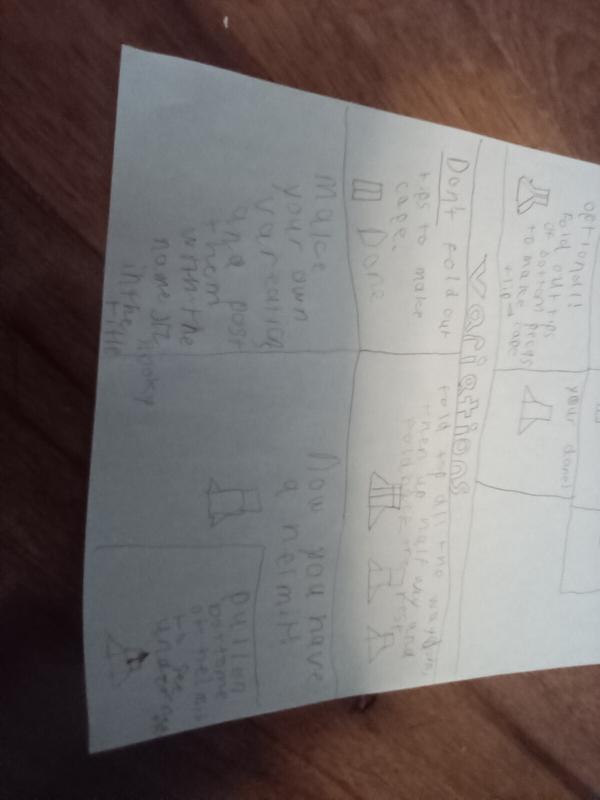 optional!!
fold out tips
of bottom preigs
to make cape
flip→
your done!
Variations
Dont fold out
tips to make
cape.
Done
fold top all the way down
then up half way and
fold back the rest
Make
your own
variation
and post
them
with the
name
in the
title
Now you have
a helmit!
Pull on
bottome
of helmit
to see
under